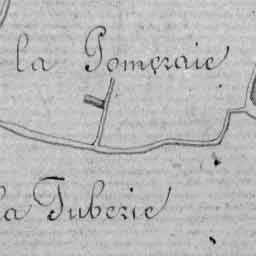 la Pomeraie
la Tuberie